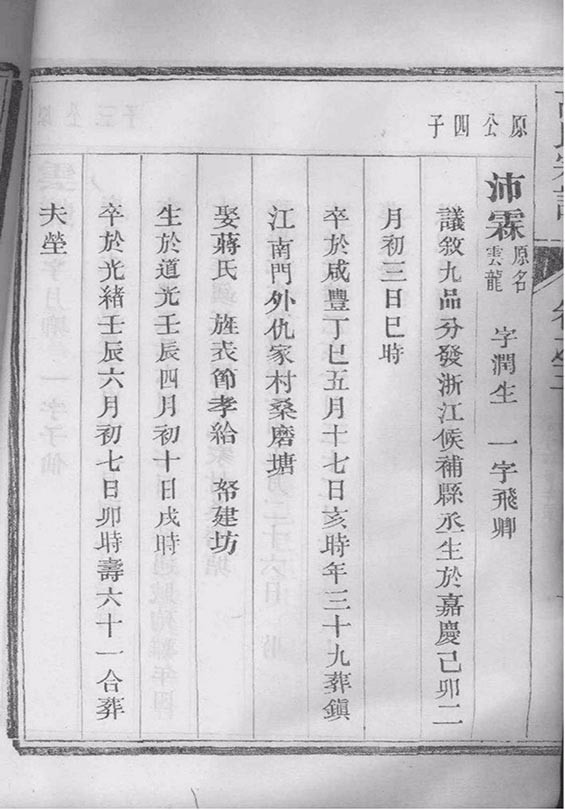 原公四子
沛霖原名雲龍 字潤生 一字飛卿
議敘九品分發浙江候補縣丞生於嘉慶己卯二
月初三日巳時
卒於咸豐丁巳五月十七日亥時年三十九葬鎭
江南門外仇家村桑磨塘
娶蔣氏 旌表節孝給 帑建坊
生於道光壬辰四月初十日戌時
卒於光緒壬辰六月初七日卯時壽六十一合葬
夫塋